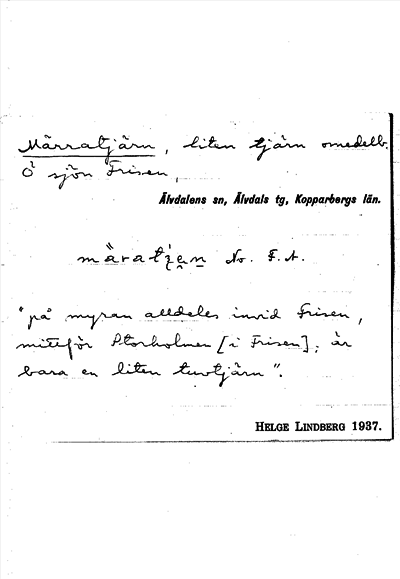 Märratjärn, liten tjärn omedelb.
Ö sjön Frisen,
Älvdalens sn, Älvdals tg, Kopparbergs län.
No. F. A.
"på myran alldeles invid Frisen,
mitt för Storholmen [i Frisen]; är
bara en liten tuvtjärn".
HELGE LINDBERG 1937.